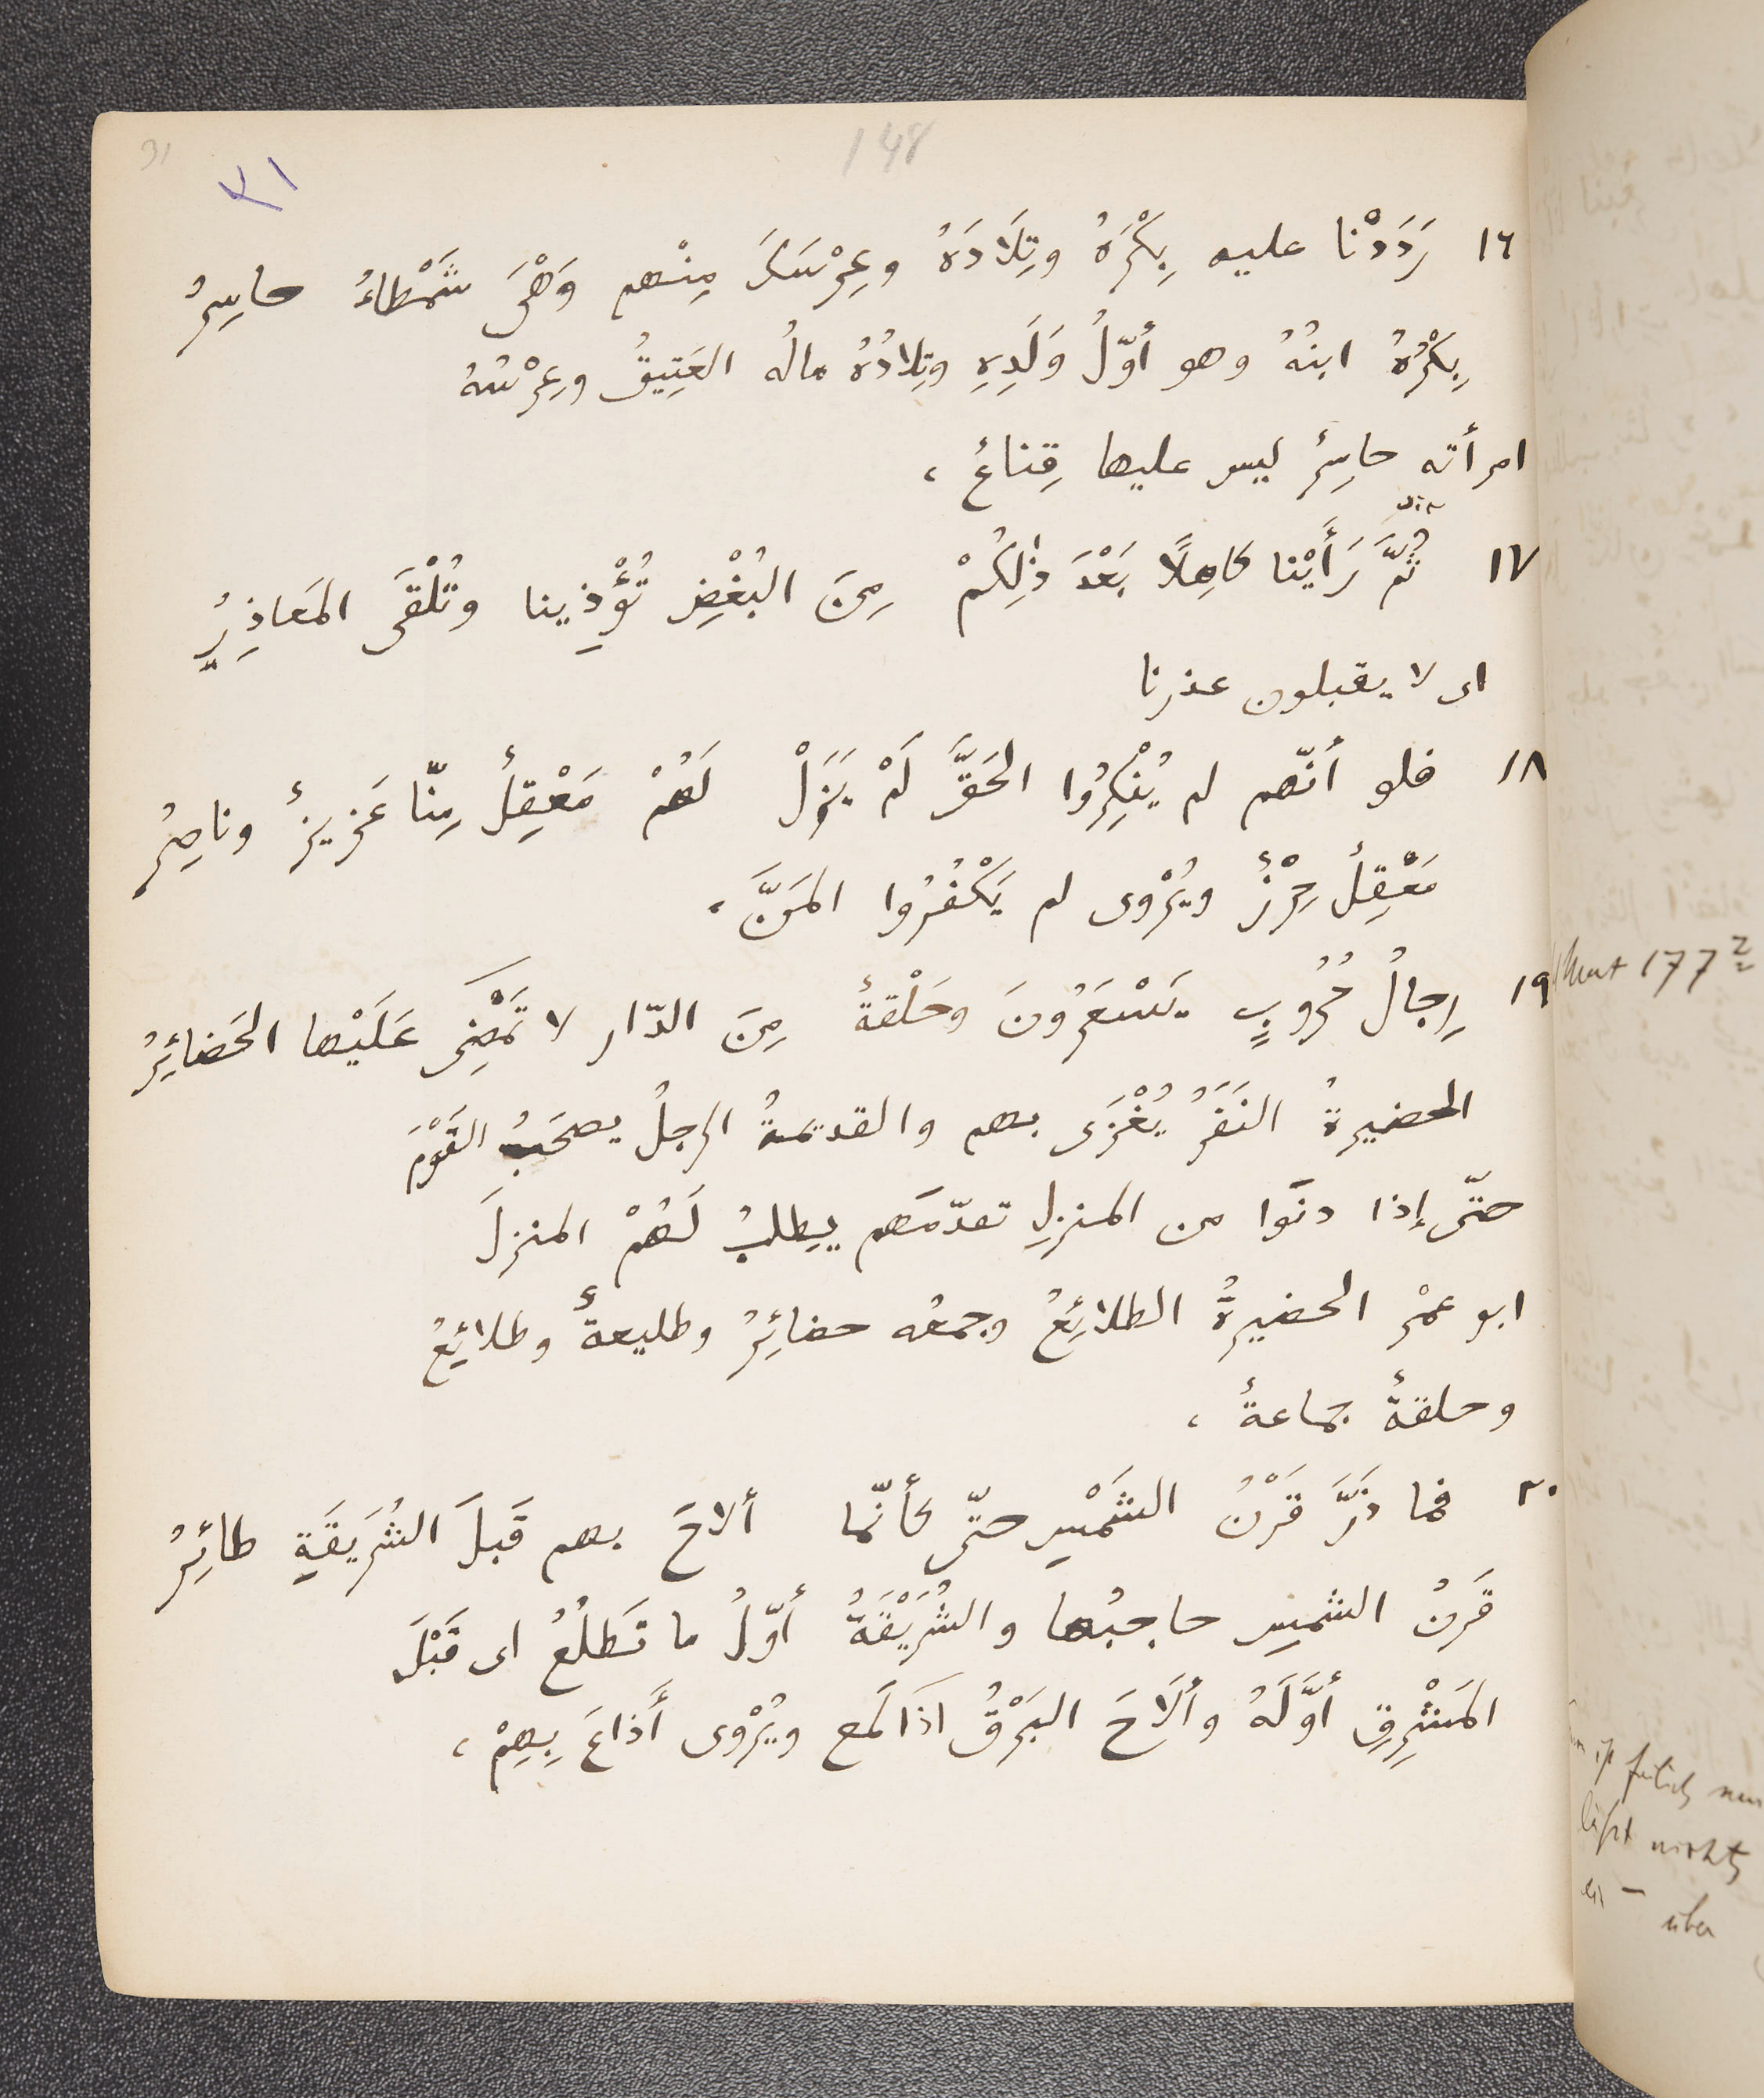 31
148
٣١
١٦ رَدَدْنا عليه بِكْرَهُ وتِلَادَهُ وعِرْسَكَ مِنْهم وَهْىَ شَمْطاءُ حاسِرُ
بِكْرُهُ ابنُهُ وهو أوّلُ وَلَدِهِ وتِلادُهُ مالُه العَتِيقُ وعِرْسُهُ
امرأته حاسِرٌ ليس عليها قِناعٌ ،
١٧ ثُمَّ رَأَيْنا كاهِلًا بَعْدَ ذٰلِكُمْ مِنَ البُغْضِ تُؤْذِينا وتُلْقَى المَعاذِيرُ
اى لا يقبلون عذرنا
١٨ فلو أنّهم لم يُنْكِرُوا الحَقَّ لَمْ يَزَلْ لَهُمْ مَعْقِلٌ مِنّا عَزِيزٌ وناصِرُ
مَعْقِلٌ حِرْزٌ ويُرْوى لم يَكْفُرُوا المَنَّ ،
١٩ رِجالُ حُرُوبٍ يَسْعَرُونَ وحَلْقةٌ مِنَ الدّار لا تَمْضِى عَلَيْها الحَضائِرُ
177
الحضيرةُ النَفَرُ يُغْزَى بهم والقديمةُ الرجلُ يصحَبُ القَوْمَ
حتّى إذا دنَوا من المنزلِ تقدّمَهم يطلبُ لَهُمْ المنزلَ
ابو عمْر الحضيرةُ الطلائِعُ وجمعُه حضائِرُ وطليعةٌ وطلائِعُ
وحلقةٌ جماعةٌ ،
٢٠ فما ذَرَّ قَرْنُ الشَمْسِ حتّى كأنّما ألاحَ بهم قَبلَ الشُرَيقَةِ طائِرُ
قَرنُ الشمسِ حاجبُها والشُرَيْقَةُ أوّلُ ما تَطلُعُ اى قَبْلَ
المَشْرِقِ أوَّلَهُ وألَاحَ البَرْقُ اذَا لَمع ويُرْوى أَذاعَ بِهِمْ ،
nichts
über